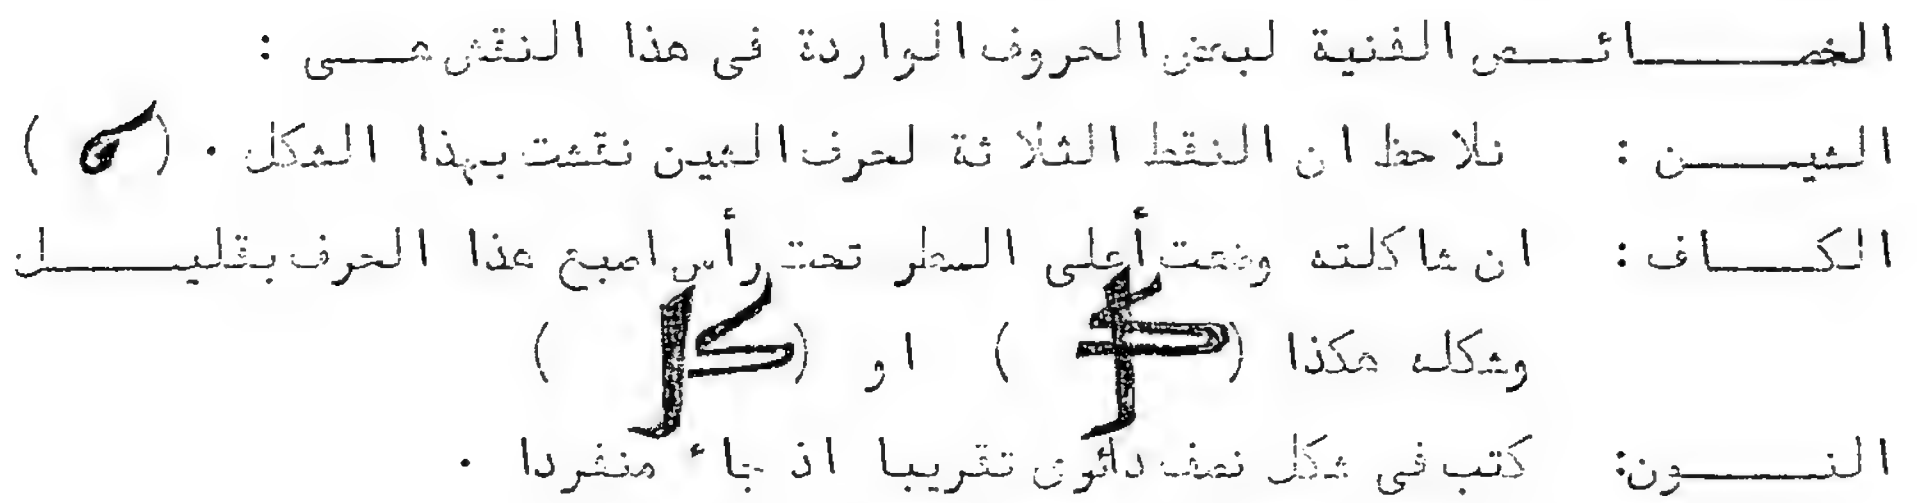 الخصائص الفنية لبعض الحروف الواردة فى هذا النقش هى :
الشين : نلاحظ ان النقط الثلاثة لحرف الشين نقشت بهذا الشكل . ( )
الكاف : ان شاكلته وضعت أعلى السطر تحت رأس اصبع هذا الحرف بقليل
وشكله هكذا ( ) او ( )
النون: كتب فى شكل نصف دائرى تقريبا اذ جاء منفردا .